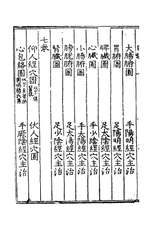 大腸腑圖　手陽明經穴主治
胃腑圖　足陽明經穴主治
脾臟圖　足太陰經穴主治
心臟圖　手少陰經穴主治
小腸腑圖　手太陽經穴主治
膀胱腑圖　足太陽經穴主治
腎臟圖　足少陰經穴主治
七卷
仰人經穴圖　伏人經穴圖
心包絡圖　手厥陰經穴主治